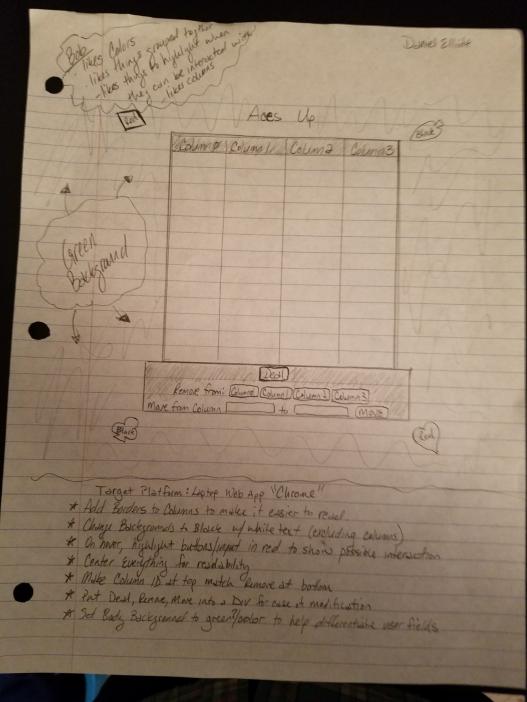 Bob
- likes Colors
- likes things grouped together
- likes things to highlight when
they can be interacted with
- likes columns
Daniel Elliott
Red
Aces Up
Black
Column0 Column1 Column2 Column3
Green
Background
Deal
Remove from: Column0 Column1 Column2 Column3
Move from Column to Move
Black
Red
Target Platform: Laptop Web App "Chrome"
* Add Borders to Columns to make it easier to read
* Change Backgrounds to Black w/ white text (excluding columns)
* On hover, highlight buttons/input in red to show possible interaction
* Center Everything for readability
* Make Column ID at top match Remove at bottom
* Put Deal, Remove, Move into a Div for ease of modification
* Set Body Background to green/color to help differentiate user fields